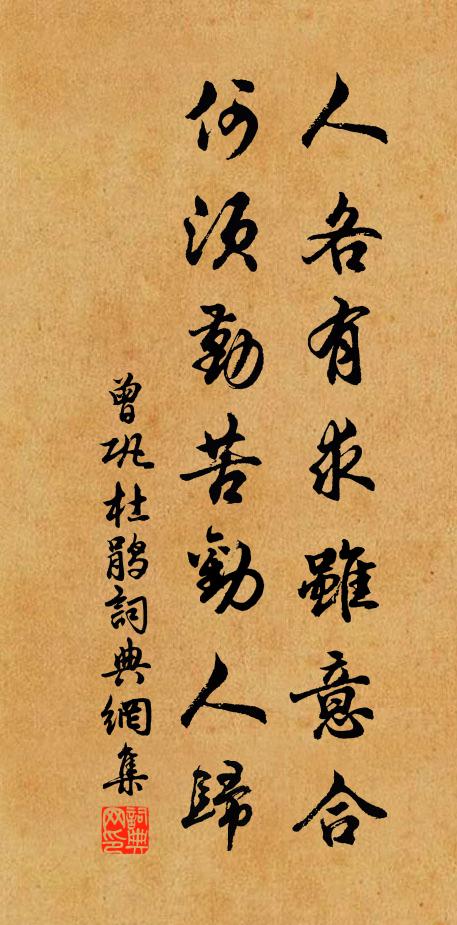 人各有求雖意合
何須勤苦勸人歸
曾巩杜鹃詞典網集
詞典网印